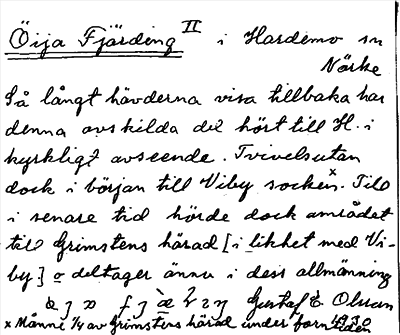 Öija Fjärding II i Hardemo sn
Närke
Så långt hävderna visa tillbaka har
denna avskilda del hört till H. i
kyrkligt avseende. Tvivelsutan
dock i början till Viby socken.x Till
i senare tid hörde dock området
till Grimstens härad [i likhet med Vi-
by] o deltager ännu i dess allmänning
Gustaf E. Olsson
x Månne 1/4 av Grimstens härad under